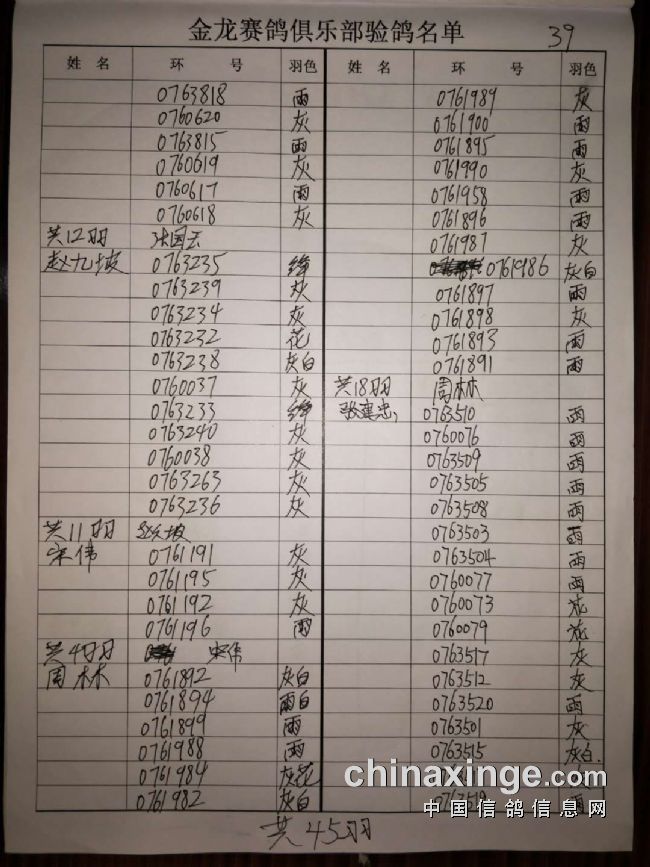 金龙赛鸽俱乐部验鸽名单
39
姓名 环号 羽色
0763818 雨
0760620 灰
0763815 雨
0760619 灰
0760617 雨
0760618 灰
共12羽 张国云
赵九坡 0763235 绛
0763239 灰
0763234 灰
0763232 花
0763238 灰白
0760037 灰
0763233 绛
0763240 灰
0760038 灰
0763263 灰
0763236 灰
共11羽
宋伟 0761191 灰
0761195 灰
0761192 灰
0761196 雨
共4羽 宋伟
周林 0761892 灰白
0761894 雨白
0761899 雨
0761988 雨
0761984 灰花
0761982 灰白
姓名 环号 羽色
0761989 灰
0761900 雨
0761895 雨
0761990 灰
0761958 雨
0761896 雨
0761987 灰
0761986 灰白
0761897 雨
0761898 灰
0761893 雨
0761891 雨
共18羽 周林
张建忠 0763510 雨
0760076 雨
0763509 雨
0763505 雨
0763508 雨
0763503 雨
0763504 雨
0760077 雨
0760073 花
0760079 花
0763517 灰
0763512 灰
0763520 雨
0763501 灰
0763515 灰白
共45羽
chinaxinge.com
中国信鸽信息网